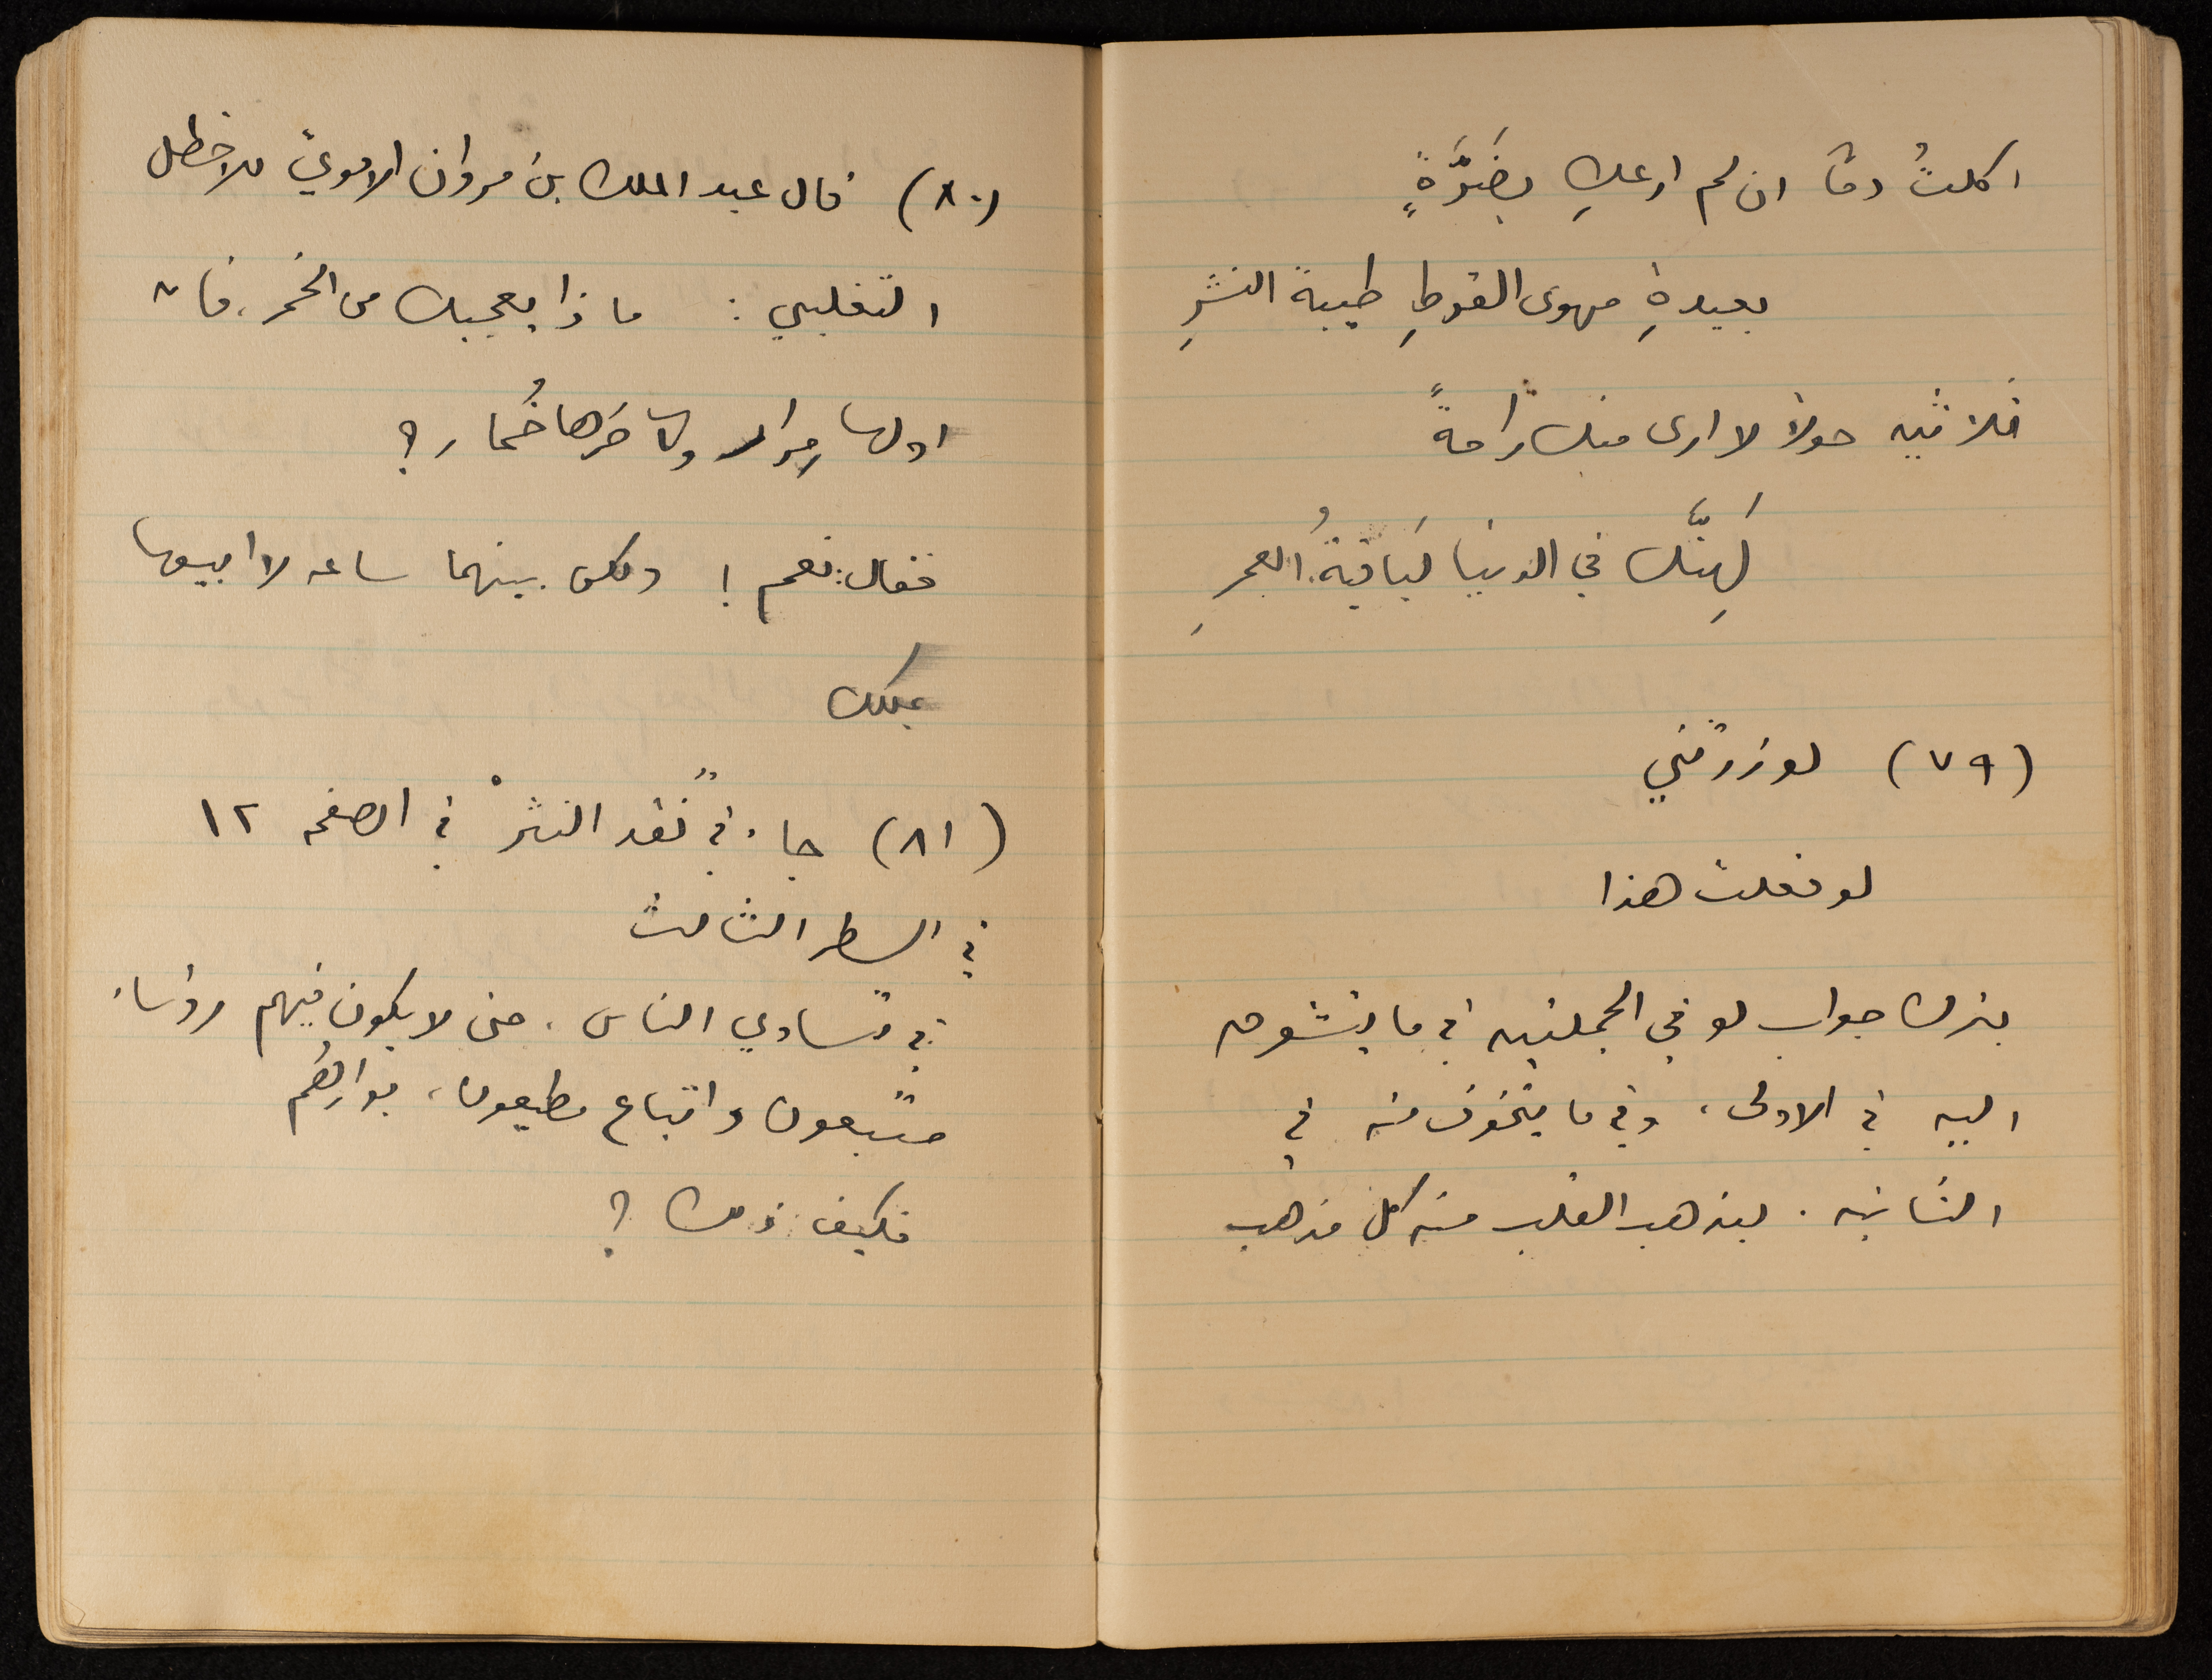 اكلتُ دمًا ان لم ارعكِ بضَرَّةٍ
بعيدةِ مهوى القرطِ طيبة النشرِ
ثلاثين حولاً لا ارى منك راحةً
لَهِنَّك في الدنيا لَبَاقيةُ العمرِ
(٧٩) لو زرتني
لو فعلت هذا
بترك جواب لو في الجملتين في ما يتشوق
اليه في الاولى، وفي ما يتخوف منه في
الثانية. ليذهب القلب منه كل مذهب
(٨٠) قال عبد الملك بن مروان الامويّ للاخطل
التغلبي: ماذا يعجبك من الخمر، فان
اولها مرار وآخرها خُمار؟
فقال: نعم! ولكن بينهما ساعة لا ابيعها
بملكك
(٨١) جاء في "نقد النثر" في الصفحة ١٢
في السطر الثالث
في تساوي الناس، حتى لا يكون فيهم رؤساء
متبعون واتباع مطيعون، بوارهُم
فكيف ذلك؟